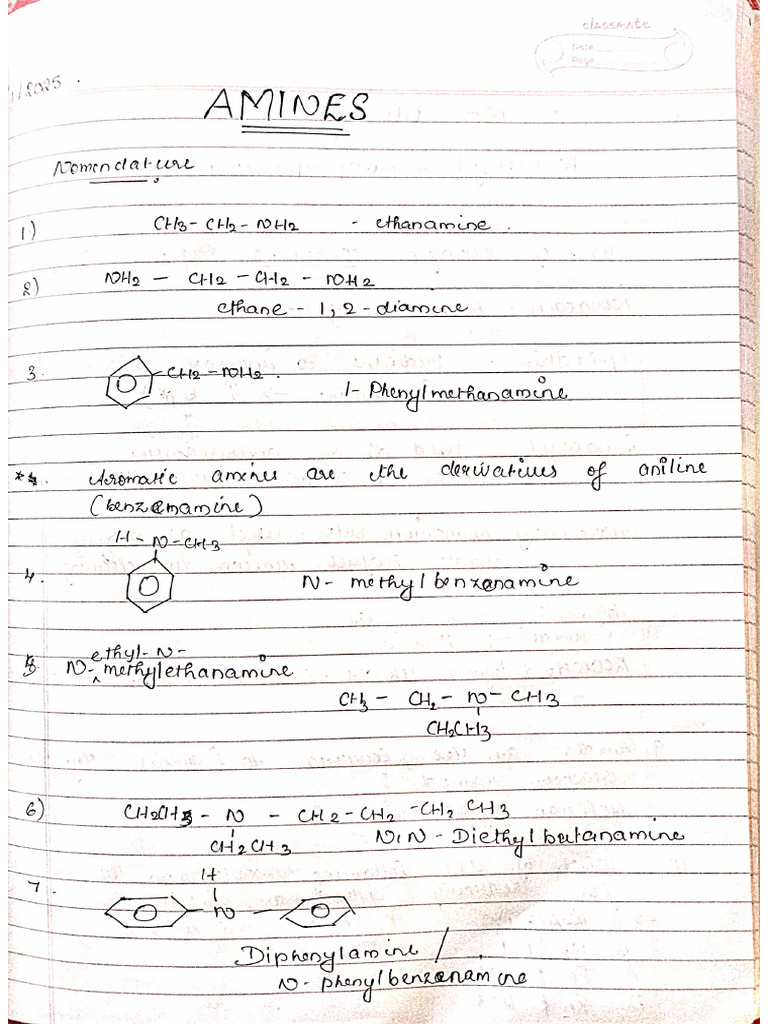 classmate
Date
Page
1/2025.
AMINES
Nomenclature
1) CH3 - CH2 - NH2 - ethanamine.
2) NH2 - CH2 - CH2 - NH2
ethane - 1,2 - diamine
3. CH2 - NH2.
1- Phenylmethanamine
*4. Aromatic amines are the derivatives of aniline
(benzenamine)
H - N - CH3
4. N- methylbenzenamine
5. ethyl- N-
N- methylethanamine
CH3 - CH2 - N - CH3
CH2CH3
6) CH2CH3 - N - CH2 - CH2 - CH2 CH3
CH2CH3 N,N - Diethylbutanamine
7. H
N
Diphenylamine /
N- phenylbenzenamine